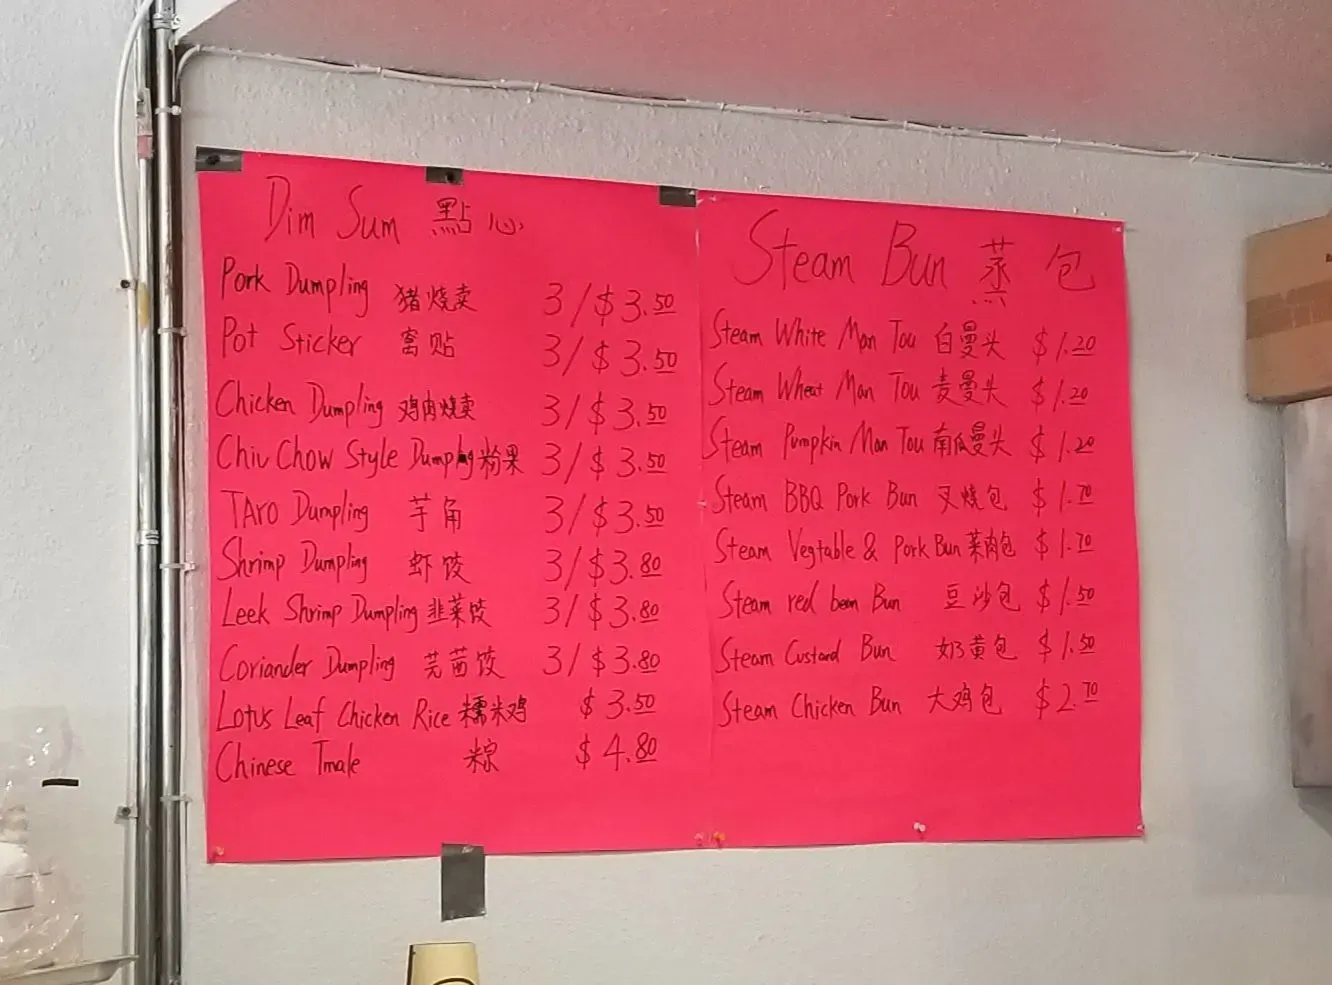 Dim Sum 點心
Pork Dumpling 猪烧卖 3/$3.50
Pot Sticker 窩贴 3/$3.50
Chicken Dumpling 鸡肉烧卖 3/$3.50
Chiu Chow Style Dumplng 粉果 3/$3.50
TAro Dumpling 芋角 3/$3.50
Shrimp Dumpling 虾饺 3/$3.80
Leek Shrimp Dumpling 韭菜饺 3/$3.80
Coriander Dumpling 芫茜饺 3/$3.80
Lotus Leaf Chicken Rice 糯米鸡 $3.50
Chinese Tmale 粽 $4.80
Steam Bun 蒸包
Steam White Man Tou 白曼头 $1.20
Steam Wheat Man Tou 麦曼头 $1.20
Steam Pumpkin Man Tou 南瓜曼头 $1.20
Steam BBQ Pork Bun 叉烧包 $1.70
Steam Vegtable & Pork Bun 菜肉包 $1.70
Steam red bean Bun 豆沙包 $1.50
Steam Custard Bun 奶黄包 $1.50
Steam Chicken Bun 大鸡包 $2.70